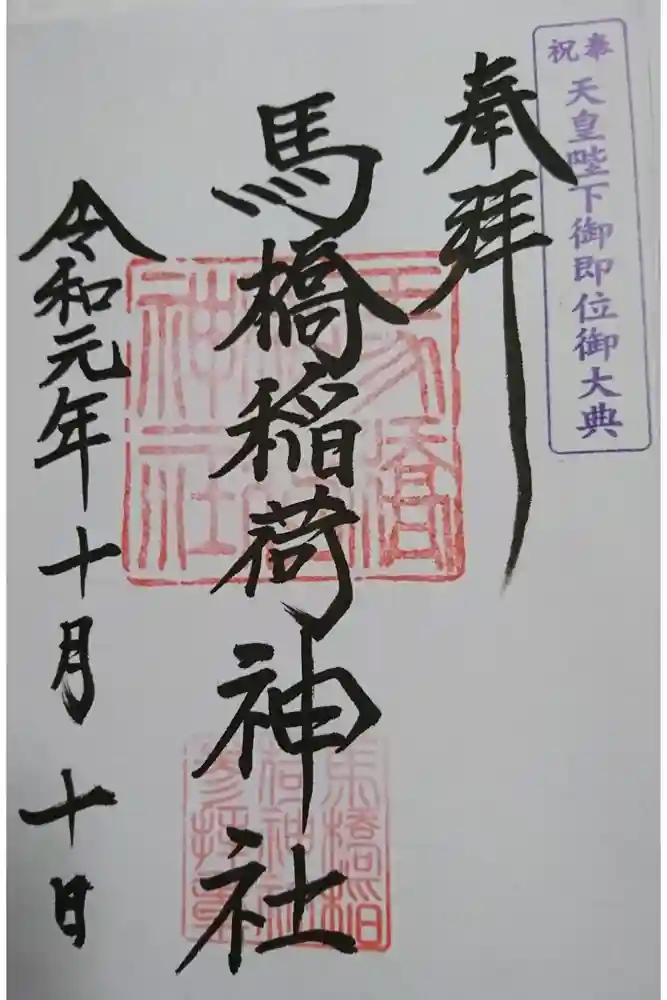 奉祝
天皇陛下御即位御大典
奉拜
馬橋稲荷神社
令和元年十月十日
馬橋稲荷神社
馬橋稲荷神社参拝章